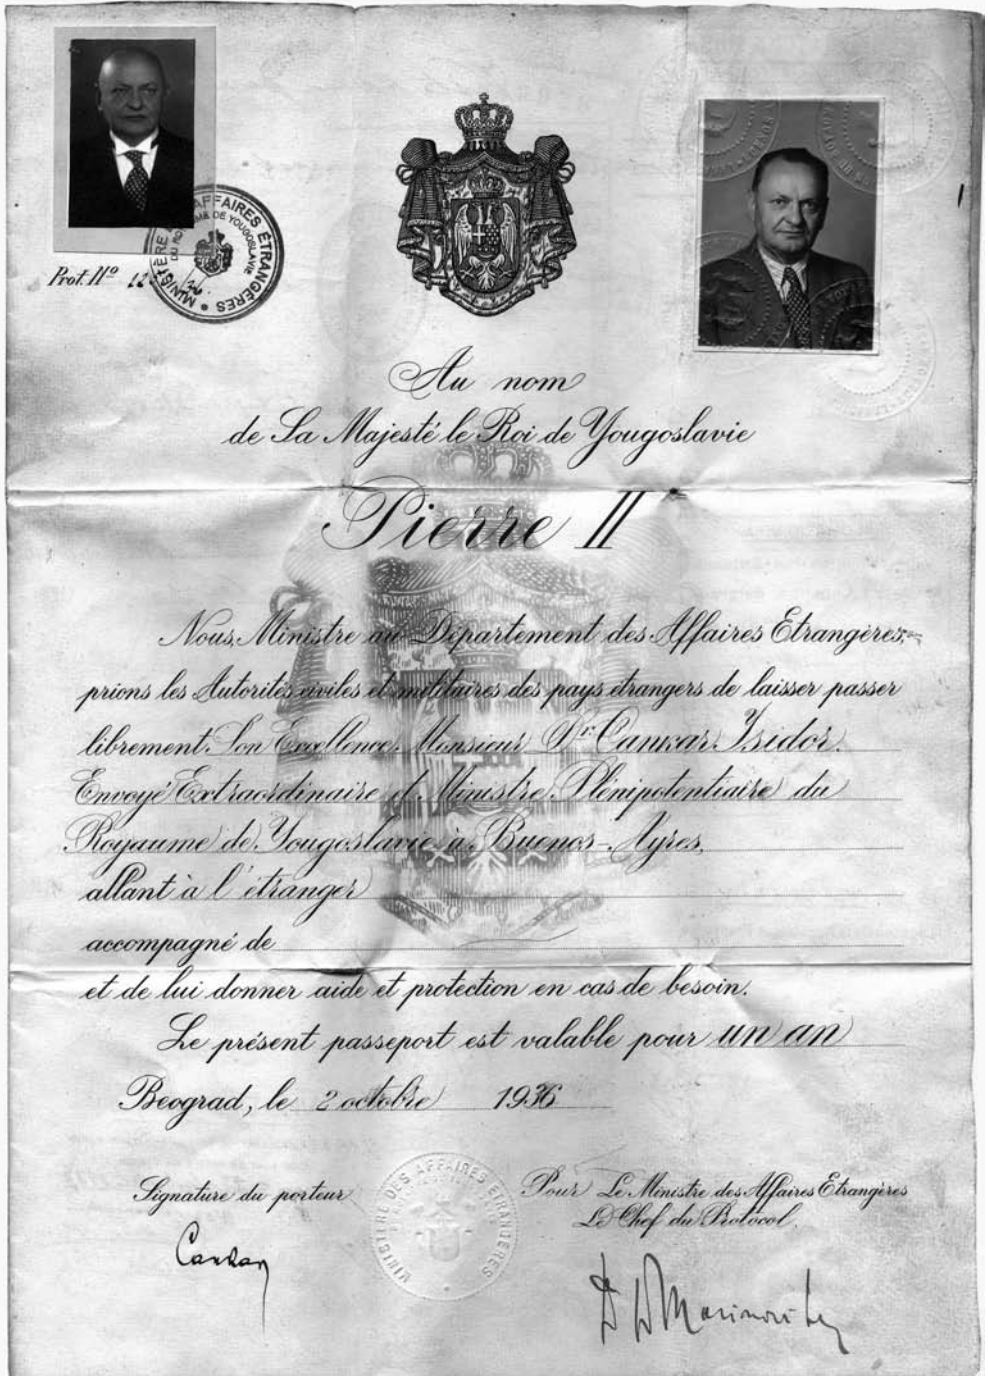 Prot. Nº
MINISTÈRE AFFAIRES ÉTRANGÈRES
DU ROYAUME DE YOUGOSLAVIE
Au nom
de Sa Majesté le Roi de Yougoslavie
Pierre II
Nous, Ministre au Département des Affaires Etrangères,
prions les Autorités civiles et militaires des pays étrangers de laisser passer
librement Son Excellence Monsieur Dr. Cankar Isidor.
Envoyé Extraordinaire et Ministre Plénipotentiaire du
Royaume de Yougoslavie à Buenos-Ayres,
allant à l'étranger
accompagné de
et de lui donner aide et protection en cas de besoin.
Le présent passeport est valable pour un an
Beograd, le 2 octobre 1936
Signature du porteur
Cankar
MINISTÈRE DES AFFAIRES ETRANGÈRES
Pour Le Ministre des Affaires Etrangères
Le Chef du Protocol.